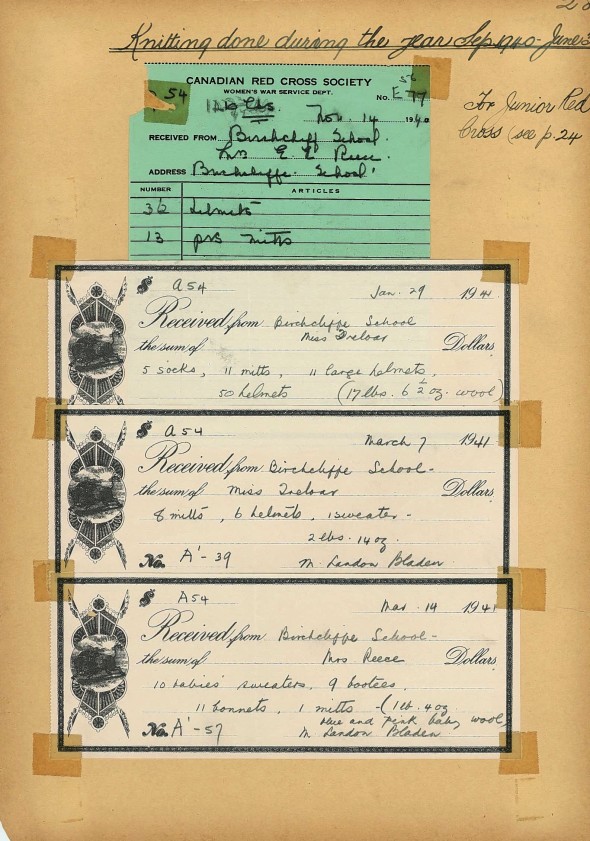 28
Knitting done during the year Sep. 1940 - June
For Junior Red
Cross (see p. 24
CANADIAN RED CROSS SOCIETY
WOMEN'S WAR SERVICE DEPT.
54
56
No. E 77
Nov. 14 1940
RECEIVED FROM Birchcliff School
Mrs E L Reece
ADDRESS Birchcliffe School
NUMBER ARTICLES
36 helmets
13 prs mitts
$ A54
Jan. 29 1941
Received from Birchcliffe School
the sum of Miss Treloar Dollars
5 socks, 11 mitts, 11 large helmets,
50 helmets (17 lbs. 6 1/2 oz. wool)
$ A54
March 7 1941
Received from Birchcliffe School -
the sum of Miss Treloar Dollars
8 mitts, 6 helmets, 1 sweater -
2 lbs. 14 oz.
No. A'-39 M. Landon Bladen
$ A54
Mar. 14 1941
Received from Birchcliffe School -
the sum of Mrs Reece Dollars
10 babies' sweaters, 9 bootees,
11 bonnets, 1 mitts - (1 lb. 4 oz.
blue and pink baby wool)
No. A'-57 M. Landon Bladen